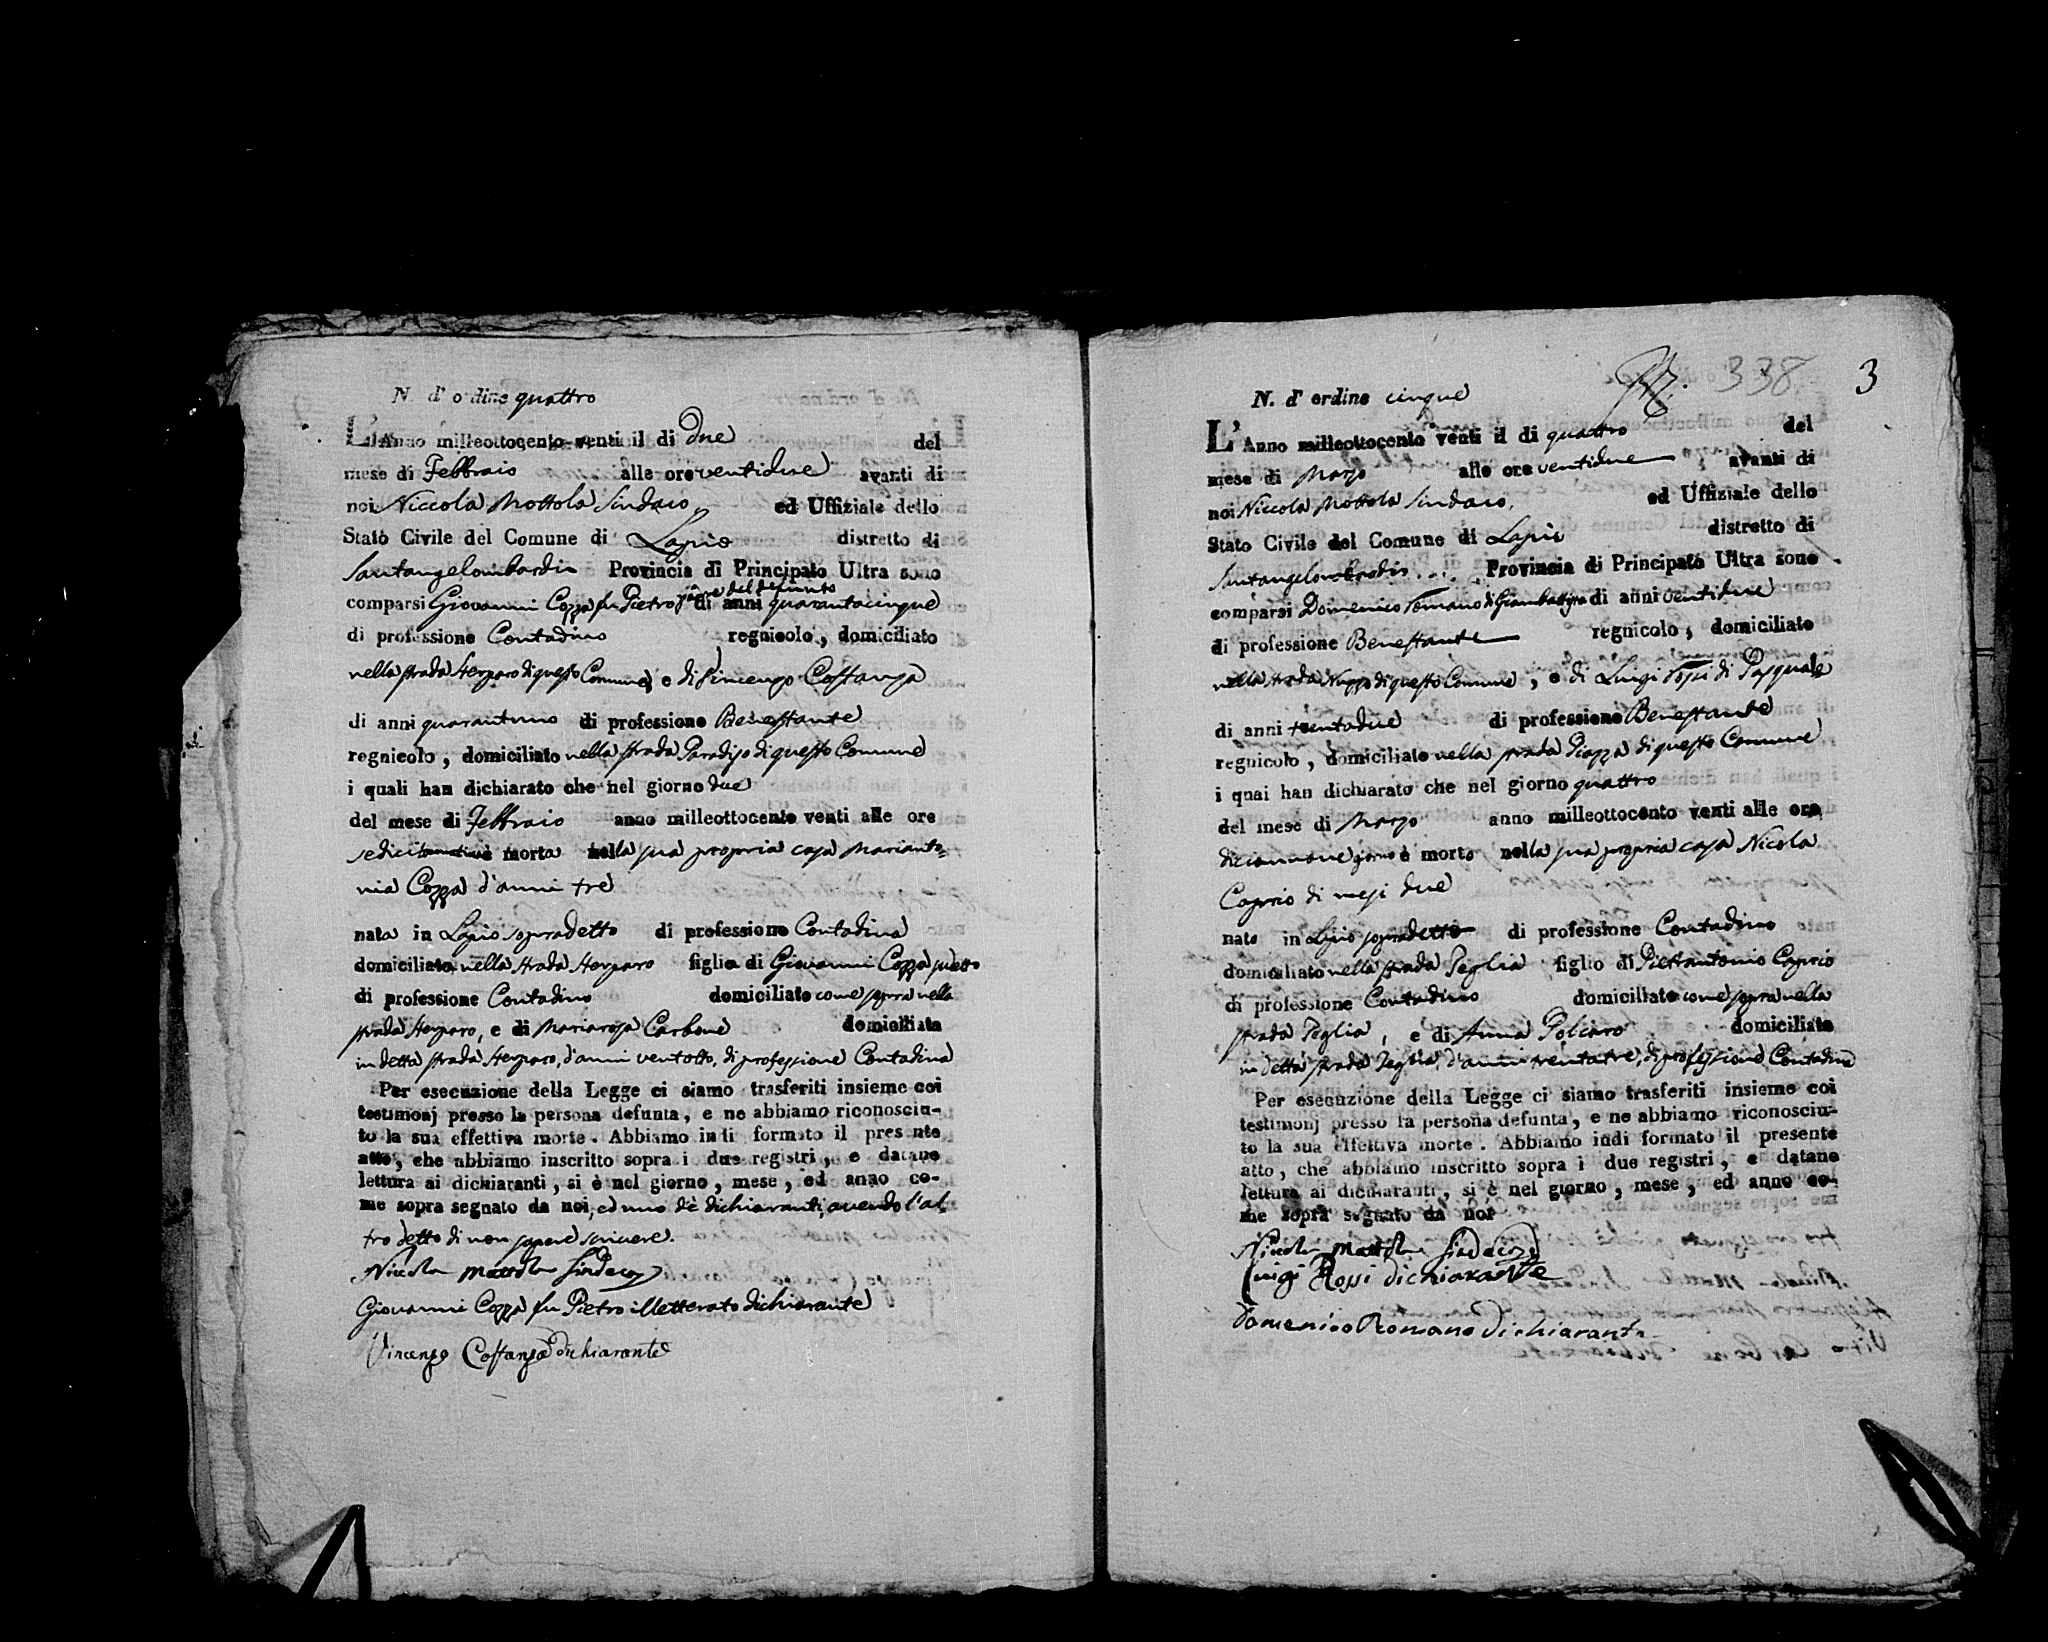 N. d' ordine quattro
L'Anno milleottocento venti il di due del
mese di Febbraio alle ore ventidue avanti di
noi Niccola Mottola Sindaco, ed Uffiziale dello
Stato Civile del Comune di Lapio distretto di
Santangelombardi Provincia di Principato Ultra sono
del defunto
comparsi Giovanni Cozza fu Pietro di anni quarantacinque
di professione Contadino regnicolo, domiciliato
nella strada Sterparo di questo Comune, e di Vincenzo Costanza
di anni quarantuno di professione Benestante
regnicolo, domiciliato nella strada Paradiso di questo Comune
i quali han dichiarato che nel giorno due
del mese di Febbraio anno milleottocento venti alle ore
sedici è morta nella sua propria casa Marianto=
nia Cozza d'anni tre
nata in Lapio sopradetto di professione Contadina
domiciliata nella strada Sterparo figlia di Giovanni Cozza sudetto
di professione Contadino domiciliato come sopra nella
strada Sterparo, e di Mariarosa Carbone domiciliata
in detta strada Sterparo, d'anni ventotto, di professione Contadina
Per esecuzione della Legge ci siamo trasferiti insieme coi
testimonj presso la persona defunta, e ne abbiamo riconosciu-
to la sua effettiva morte. Abbiamo indi formato il presente
atto, che abbiamo inscritto sopra i due registri, e datane
lettura ai dichiaranti, si è nel giorno, mese, ed anno co-
me sopra segnato da noi, ed uno dè dichiaranti, avendo l'al
tro detto di non sapere scrivere.
Niccola Mottola Sindaco
Giovanni Cozza fu Pietro illetterato dichiarante
Vincenzo Costanza dichiarante
338 3
N. d' ordine cinque
L'Anno milleottocento venti il di quattro del
mese di Marzo alle ore ventidue avanti di
noi Niccola Mottola Sindaco, ed Uffiziale dello
Stato Civile del Comune di Lapio distretto di
Santangelombardi .... Provincia di Principato Ultra sono
comparsi Domenico Romano di Giambattista di anni ventidue
di professione Benestante regnicolo, domiciliato
nella strada Nuzzo di questo Comune, e di Luigi Rossi di Pasquale
di anni trentadue di professione Benestante
regnicolo, domiciliato nella strada Piazza di questo Comune
i quai han dichiarato che nel giorno quattro
del mese di Marzo anno milleottocento venti alle ore
diciannove giorno è morto nella sua propria casa Nicola
Caprio di mesi due
nato in Lapio sopradetto di professione Contadino
domiciliato nella strada Teglia figlio di Pietrantonio Caprio
di professione Contadino domiciliato come sopra nella
strada Teglia, e di Anna Policaro domiciliata
in detta strada Teglia, d'anni trentatre, di professione Contadina
Per esecuzione della Legge ci siamo trasferiti insieme coi
testimonj presso la persona defunta, e ne abbiamo riconosciu-
to la sua effettiva morte. Abbiamo indi formato il presente
atto, che abbiamo inscritto sopra i due registri, e datane
lettura ai dichiaranti, si è nel giorno, mese, ed anno co-
me sopra segnato da noi
Niccola Mottola Sindaco
Luigi Rossi dichiarante
domenico Romano dichiarante